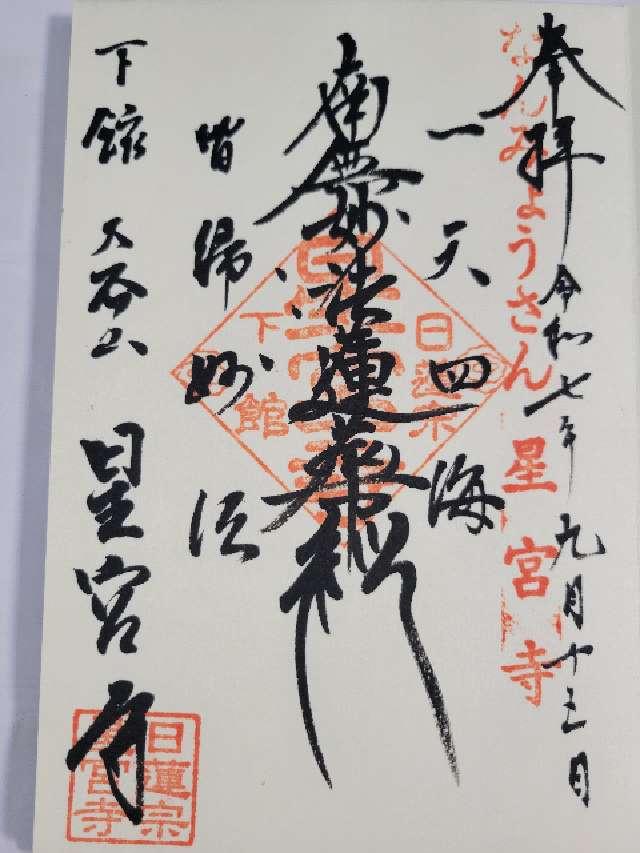 奉拝
令和七年九月十三日
なんみょうさん
星宮寺
一天四海
南無妙法蓮華経
皆帰妙法
日蓮宗
下館
下館
星宮寺
日蓮宗
宮寺